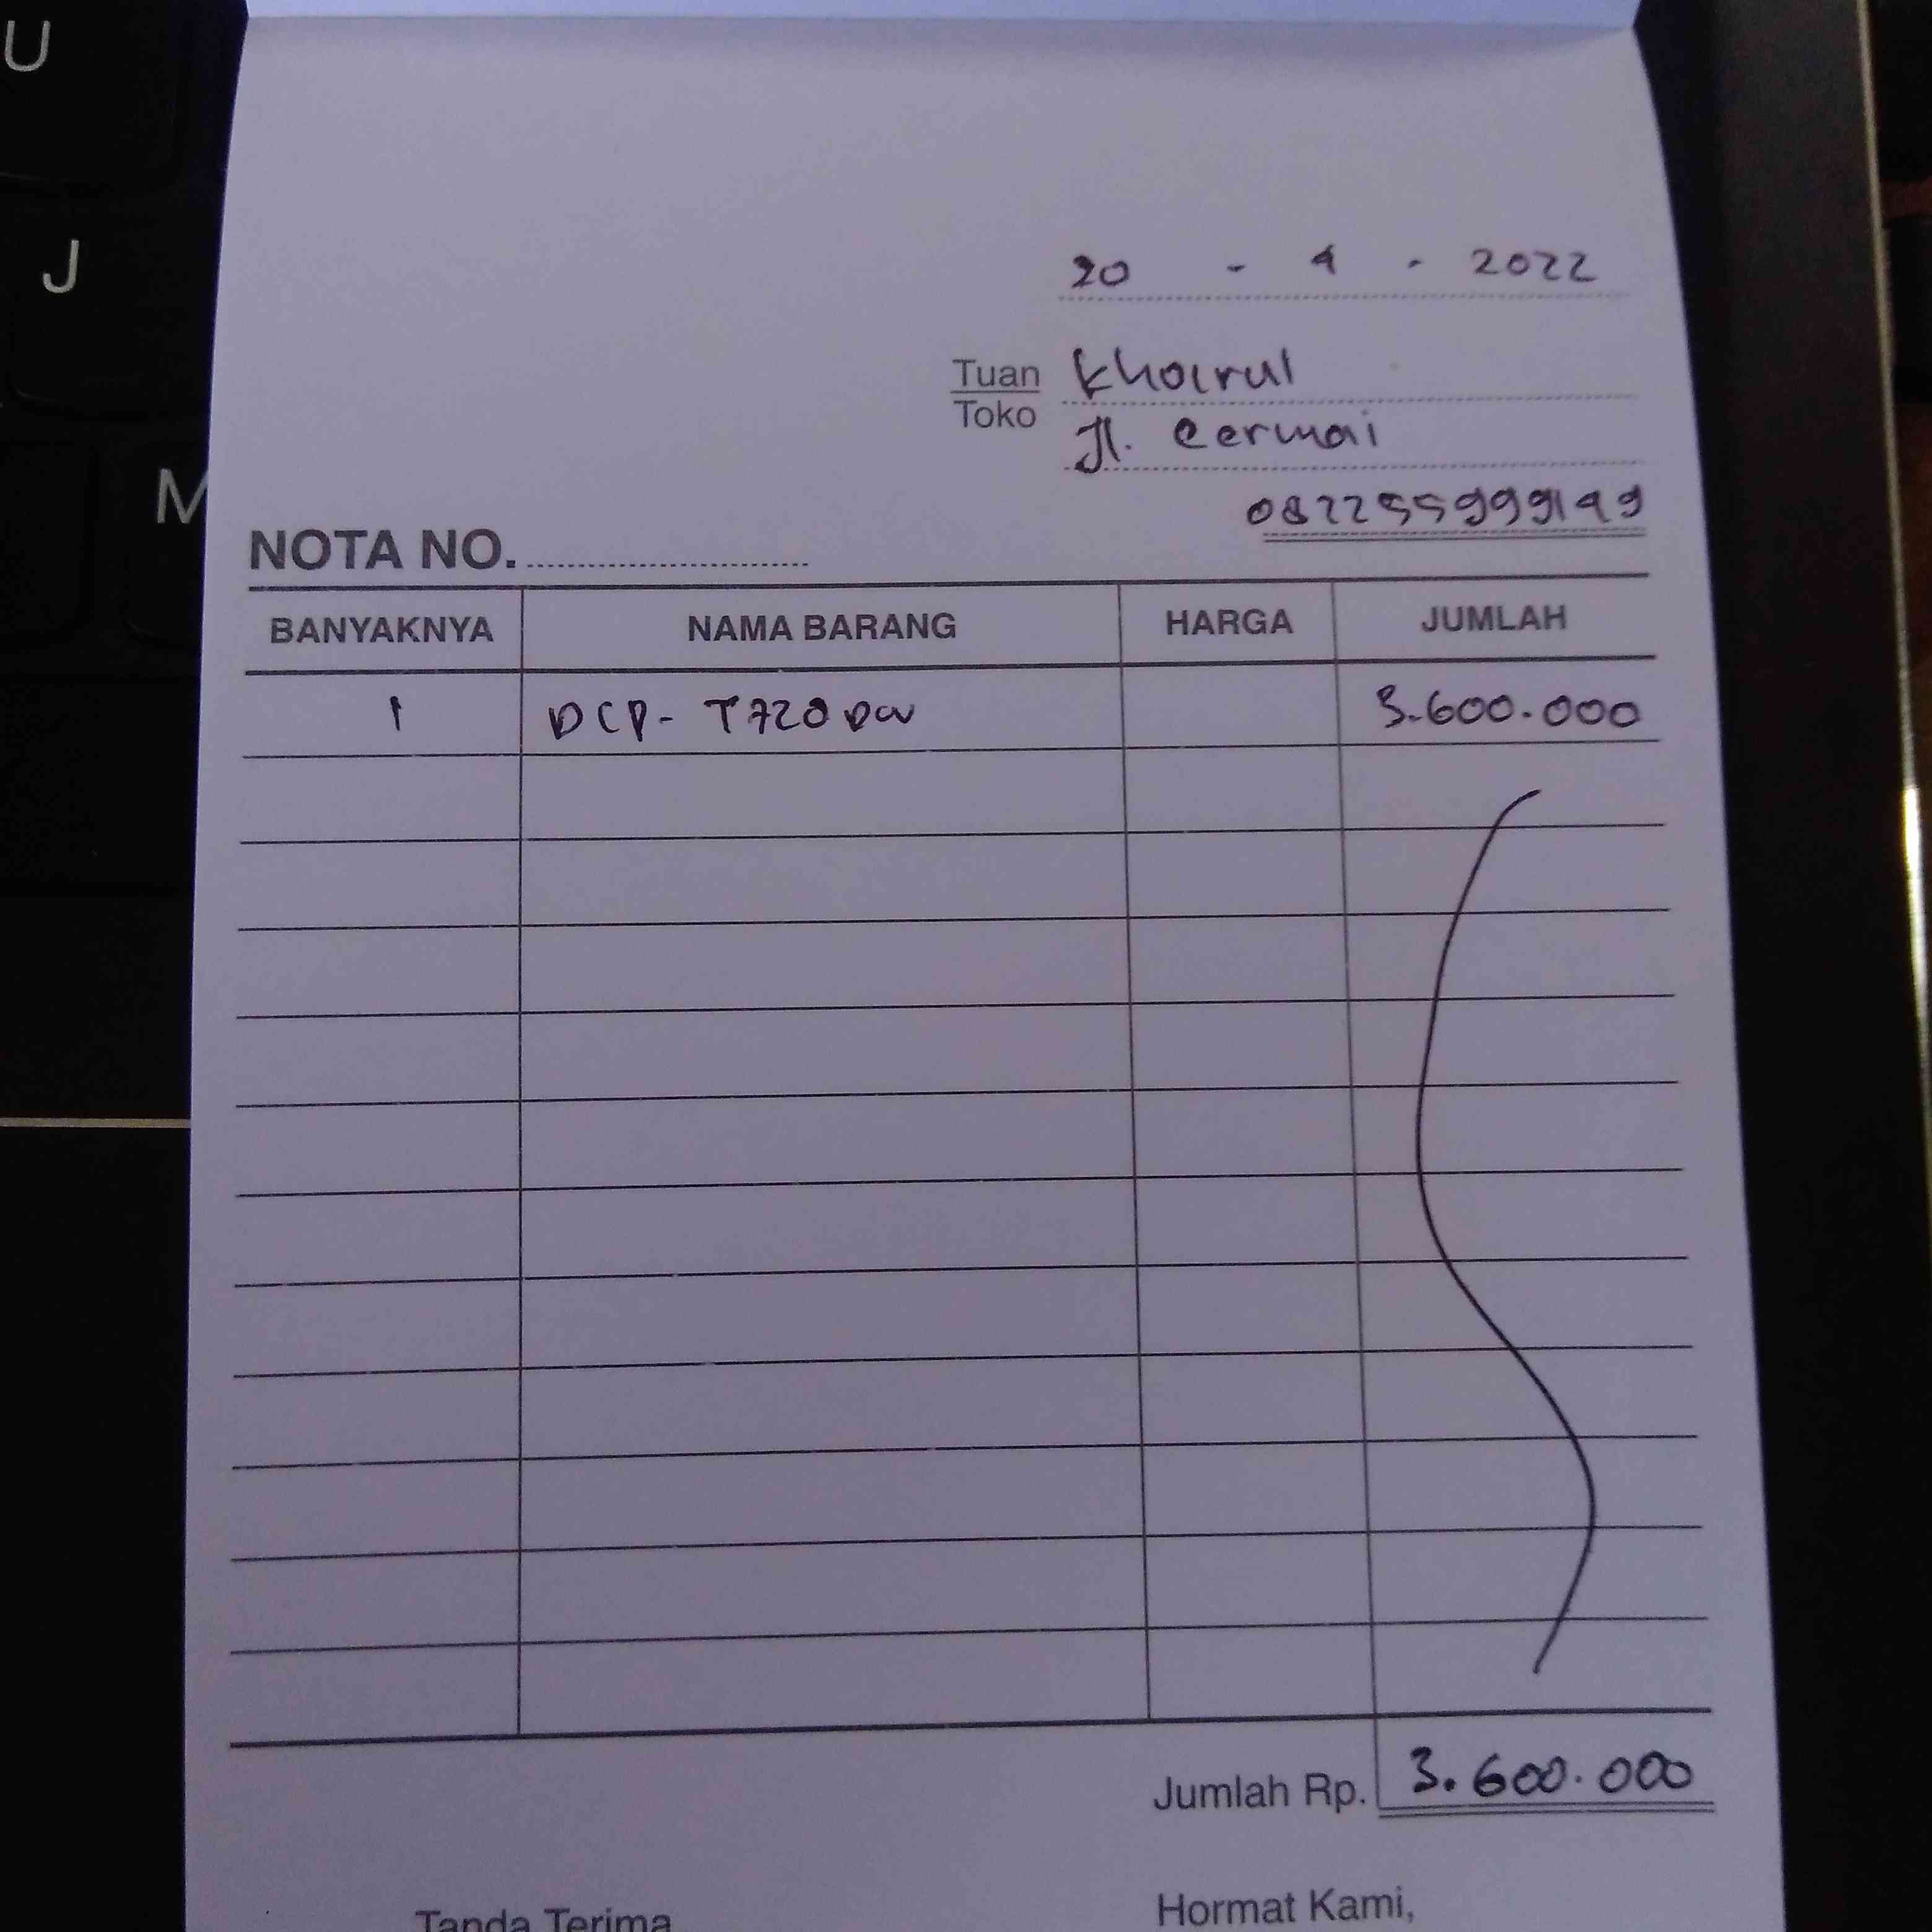 U
J
M
20 - 4 - 2022
Tuan Khoirul
Toko Jl. Cermai
082255999149
NOTA NO.
BANYAKNYA NAMA BARANG HARGA JUMLAH
1 DCP- T720DW 3.600.000
Jumlah Rp. 3.600.000
Tanda Terima Hormat Kami,